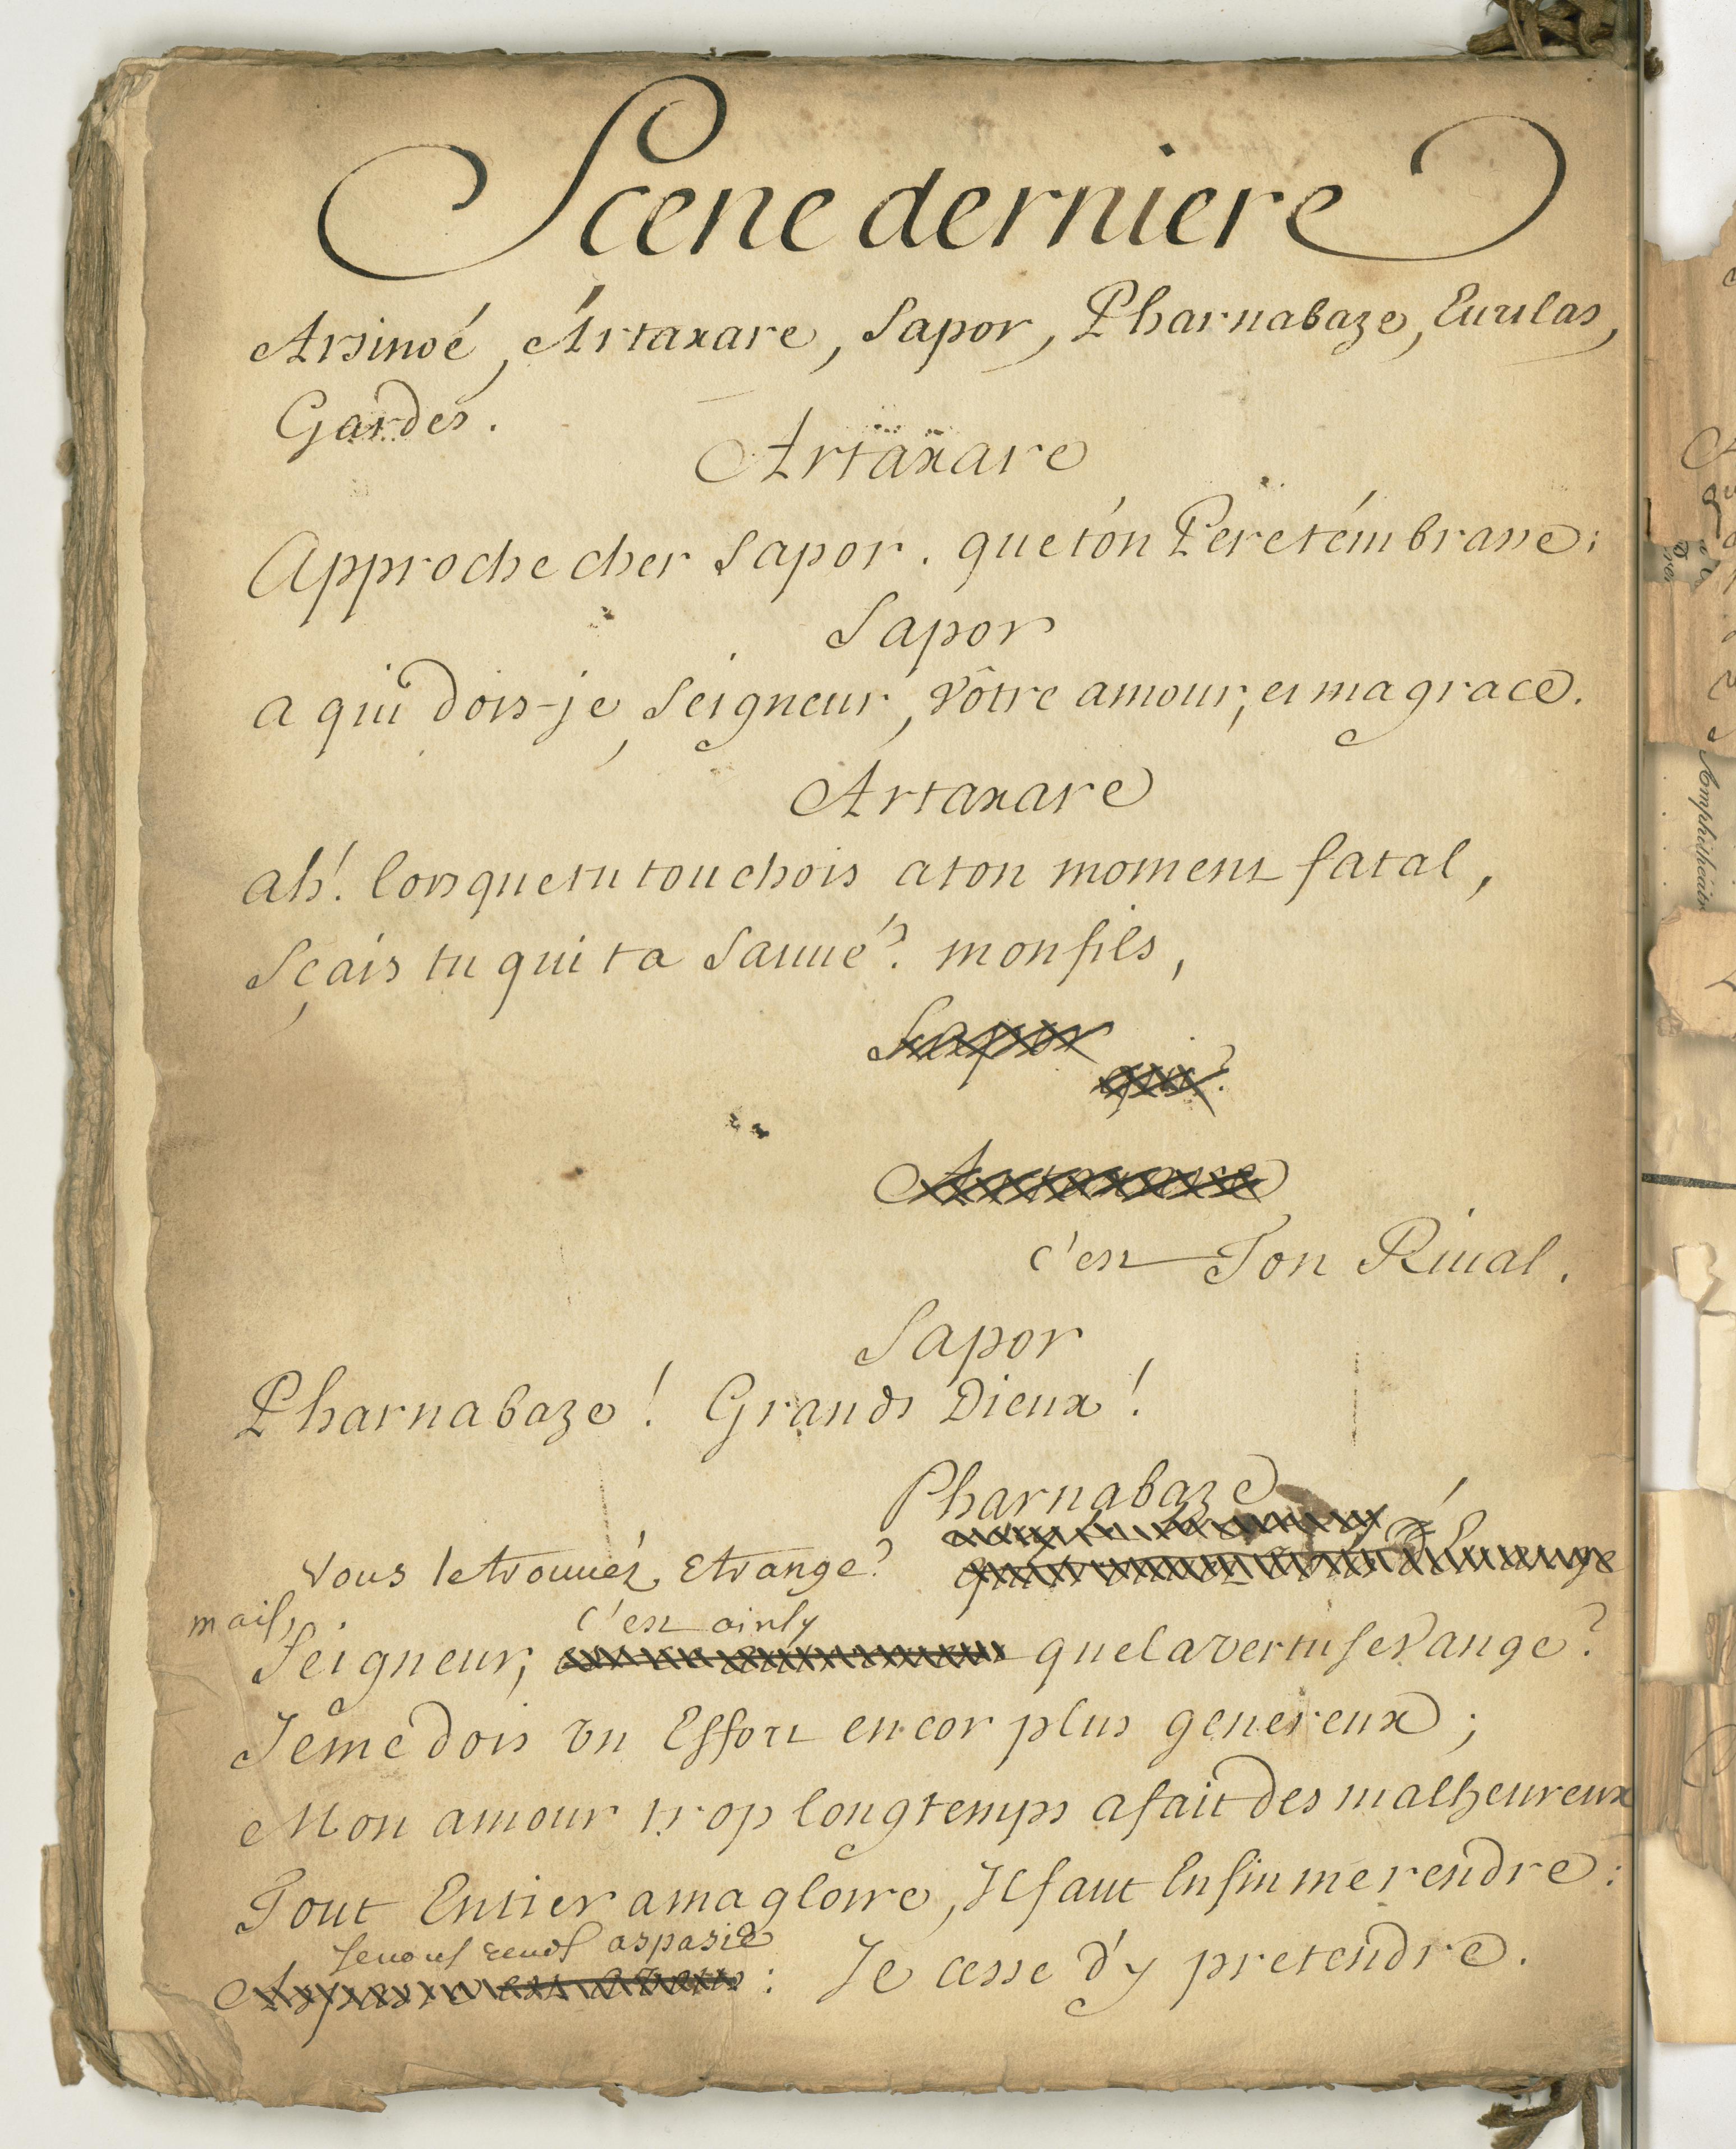 Scene derniere
Arsinoé, Artaxare, Sapor, Pharnabaze, Eurilas,
Gardes.
Artaxare
Approche cher Sapor. que ton Pere t'émbrasse;
Sapor
a qui dois-je, Seigneur, vôtre amour, et ma grace.
Artaxare
ah! lorsque tu touchois a ton moment fatal,
Sçais tu qui ta Sauué? mon fils,
Sapor
qui?
Artaxare
c'est Ton Riual.
Sapor
Pharnabaze! Grands Dieux!
Pharnabaze
Vous le trouués Etrange?
mais c'est ainsy
Seigneur, que la vertu se vange?
Je me dois un Effort encor plus genereux;
Mon amour trop longtemps a fait des malheureux
Tout Entier a ma gloire, Il faut Enfin me rendre:
Je vous rends aspasie
: Je cesse d'y pretendre.
Amphitheatr